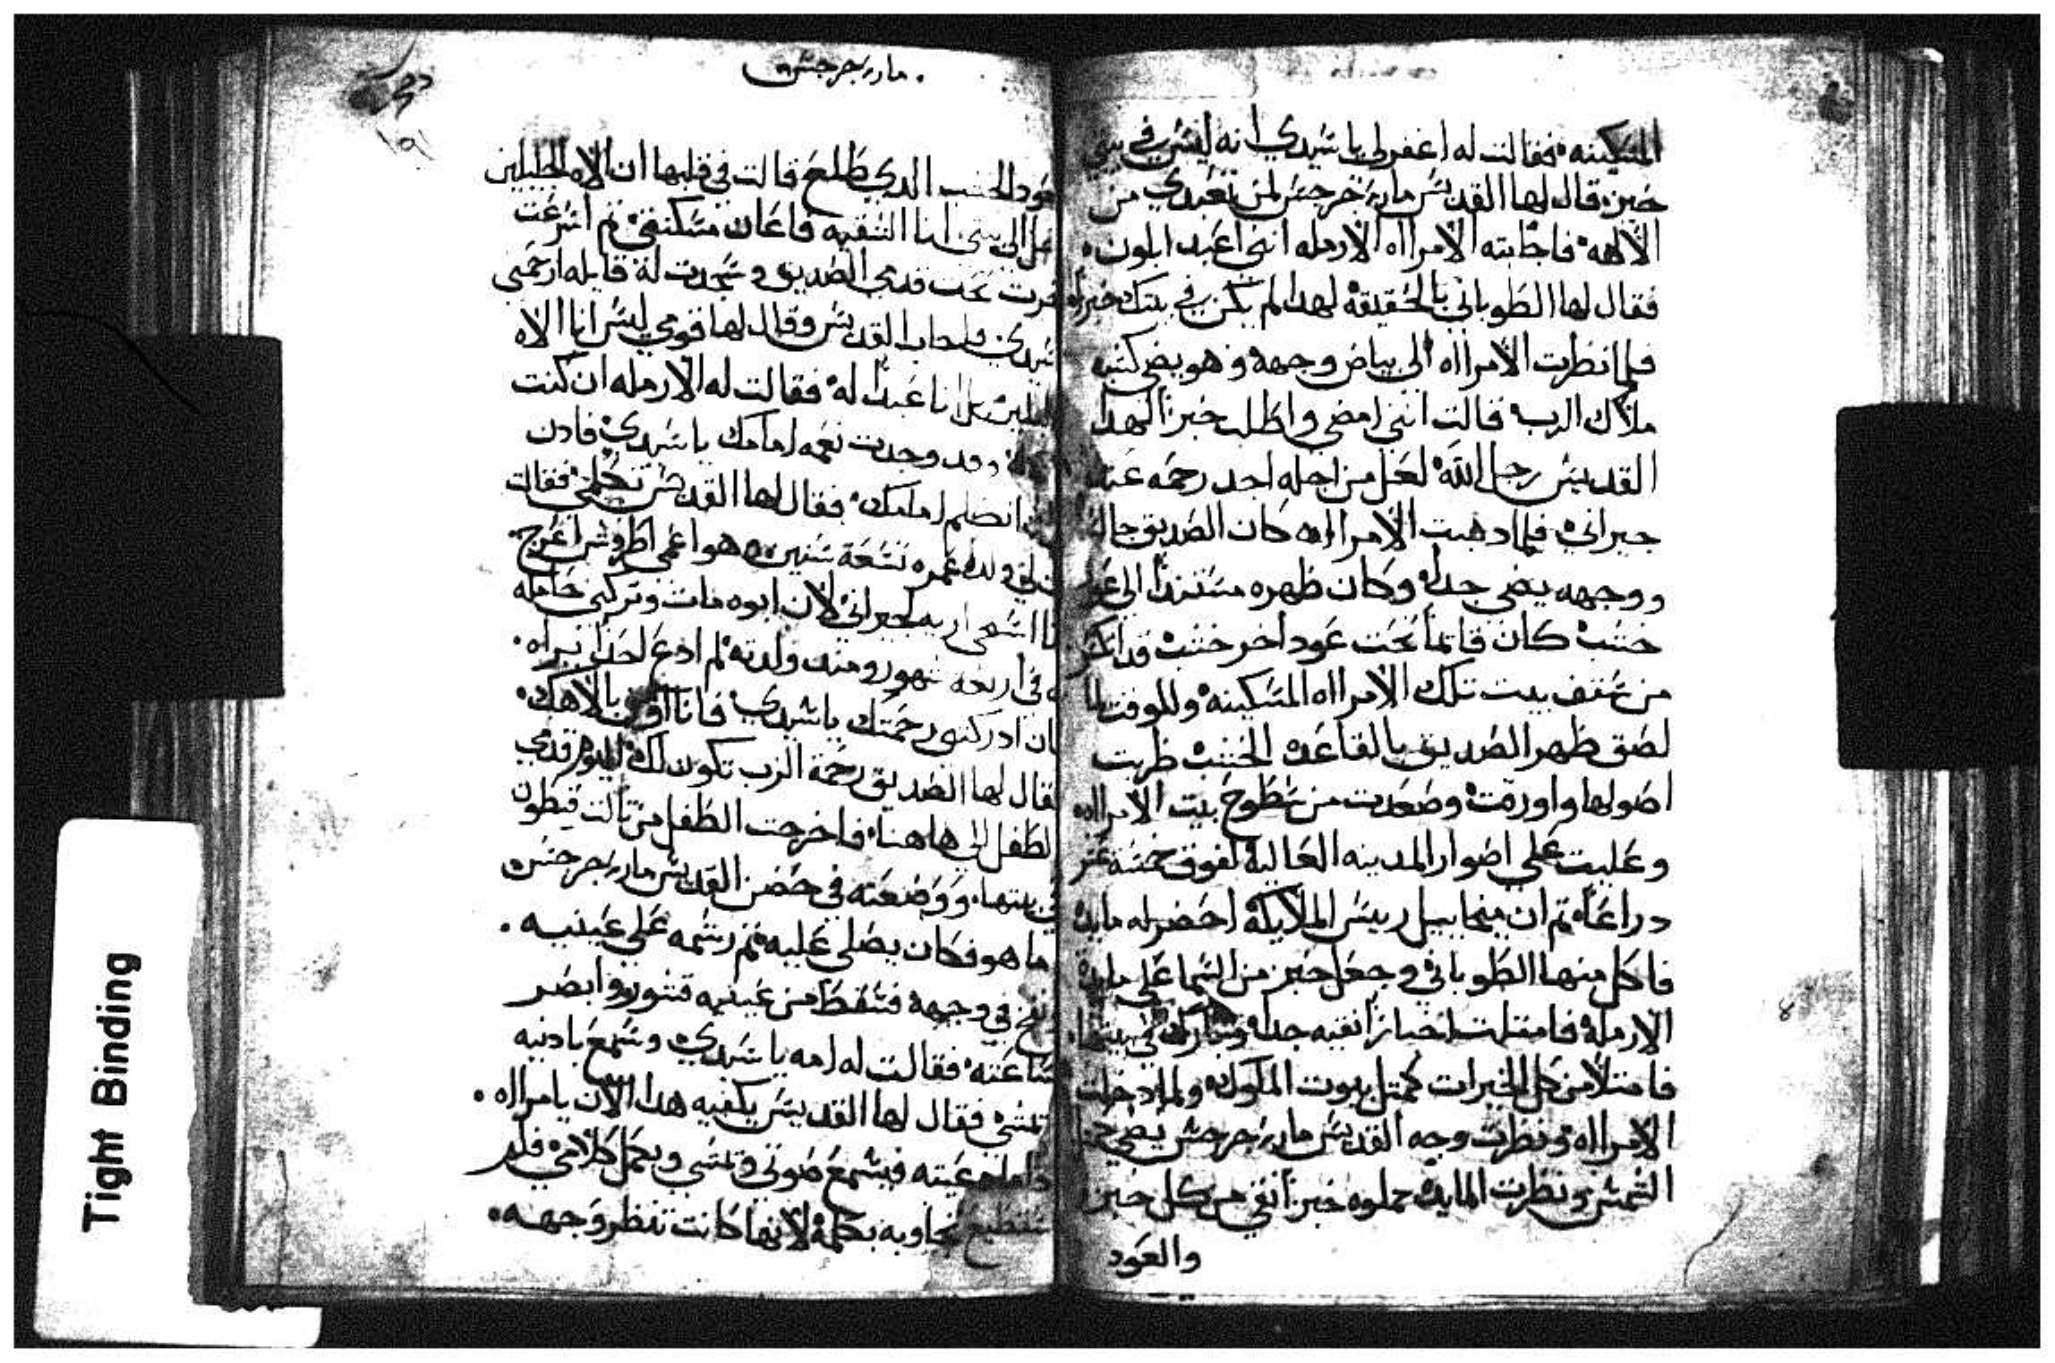 المسكينه فقالت له اغفر لي يا سيدي انه ليس في بيتي
خبز قال لها القديس ماري جرجس لمن تعبدي من
الالهه فاجابته الامراه الارمله انني اعبد ابلون
فقال لها الطوباني بالحقيقه لهدا لم يكن في بيتك خبزا
فلما نظرت الامرااه الي بياض وجهه وهو يضي كشبه
ملاك الرب قالت انني امضي واطلب خبزا لهدا
القديس رجل الله لعل من اجله اجد رحمه عند
جيراني فلما دهبت الامرااه كان الصديق جالس
ووجهه يضي جدا وكان ظهره مستندا الي عود
خشب كان قائما تحت عود اخر خشب قد انكسر
من سقف بيت تلك الامرااه المسكينه وللوقت لما
لصق ظهر الصديق بالقاعده الخشب ظهرت
اصولها واورقت وصعدت من سطوح بيت الامرااه
وعليت علي اصوار المدينه العاليه لفوق خمسة عشر
دراعا تم ان ميخاييل رييس الملايكه احضر له مايده
فاكل منها الطوباني وجعل خبز من السما علي مايدة
الارمله فامتلت اخبازا نقيه جدا وبارك في بيتها
فامتلا من كل الخيرات كمتل بيوت الملوك ولما دخلت
الامرااه ونظرت وجه القديس ماري جرجس يضي
الشمس ونظرت المايده مملوه خبزا نقي من كل خبز
والعود
. ماري جرجس
١٥١
عود الخشب الدي طلع قالت في قلبها ان الاه الجليلين
دخل الي بيتي انا الشقيه فاعان مسكنتي تم اسرعت
فخرت تحت قدمي الصديق وسجدت له قايله ارحمني
سيدي فاجاب القديس وقال لها قومي ليس انا الاه
الجليلين بل انا عبدا له فقالت له الارمله ان كنت
وقد وجدت نعمه امامك يا سيدي فادن
اتكلم امامك فقال لها القديس تكلمي فقالت
لي ولد عمره تسعة سنين وهو اعمي اطروش اعرج
لجيراني لان ابوه مات وتركني حامله
في اربعة شهور ومند ولدته لم ادع احدا يراه
فان ادركتني رحمتك يا سيدي فانا اومن بالاهك
فقال لها الصديق رحمة الرب تكون لك اليوم قدمي
الطفل الي هاهنا فاخرجت الطفل من تالت قيطون
في بيتها ووضعته في حضن القديس ماري جرجس
اما هو فكان يصلي عليه تم رشمه علي عينيه
ونفخ في وجهه فسقط من عينيه قشور وابصر
ساعته فقالت له امه يا سيدي وسمع بادنيه
تمشي فقال لها القديس يكفيه هدا الان يا مرااه
فيسمع صوتي ويمشي ويعمل كلامي فلم
تستطيع تجاوبه بكلمة لانها كانت تنظر وجهه